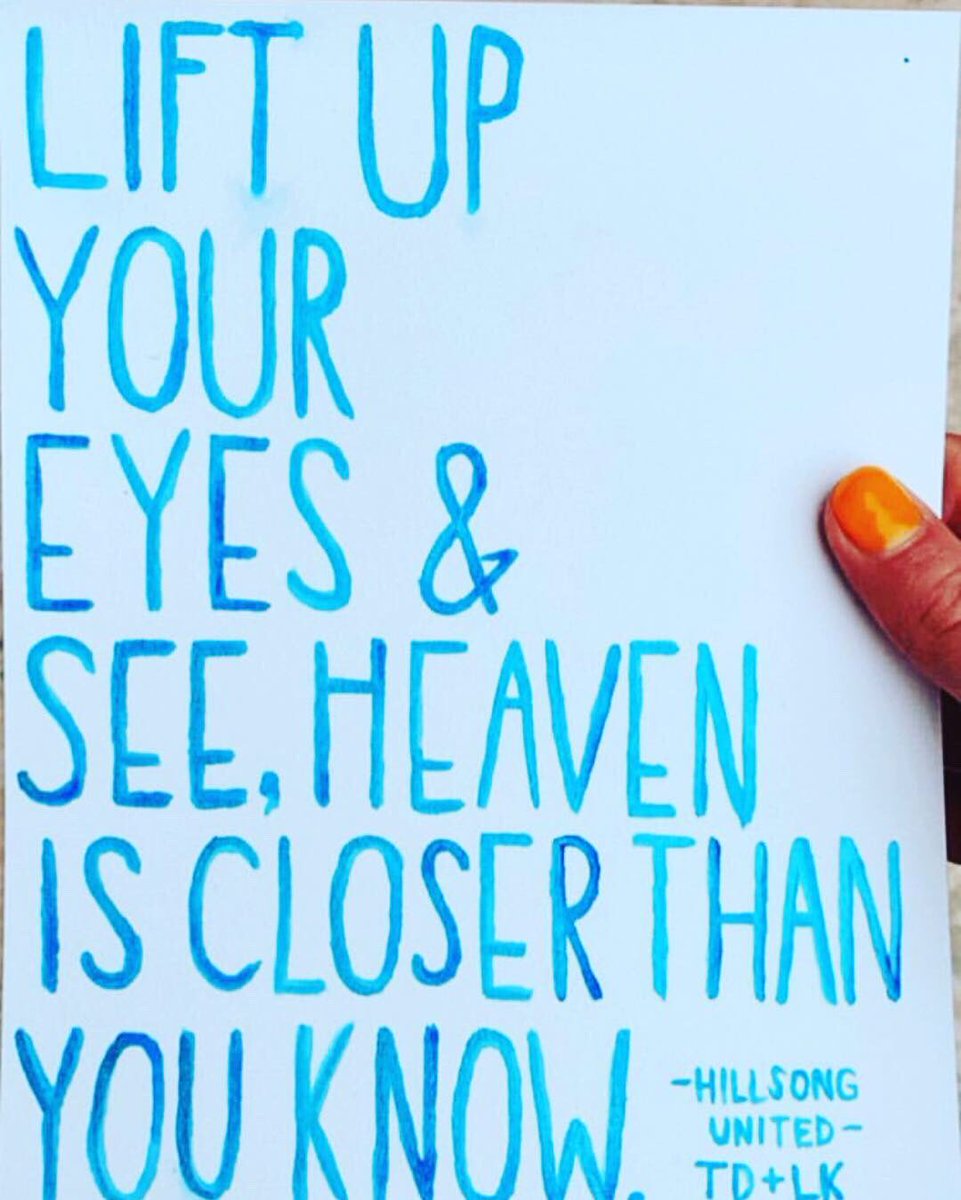 LIFT UP
YOUR
EYES &
SEE, HEAVEN
IS CLOSER THAN
YOU KNOW.
-HILLSONG
UNITED-
TD+LK